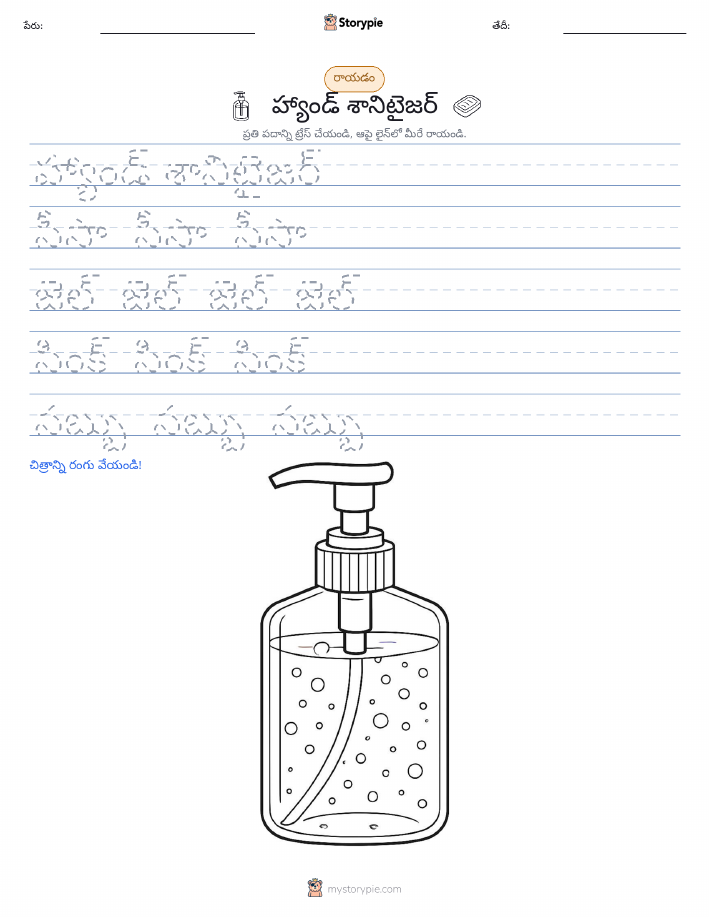 పేరు:
Storypie
తేదీ:
రాయడం
హ్యాండ్ శానిటైజర్
ప్రతి పదాన్ని ట్రేస్ చేయండి, ఆపై లైన్‌లో మీరే రాయండి.
హ్యాండ్ శానిటైజర్
సీసా సీసా సీసా
జెల్ జెల్ జెల్ జెల్
సింక్ సింక్ సింక్
సబ్బు సబ్బు సబ్బు
చిత్రాన్ని రంగు వేయండి!
mystorypie.com